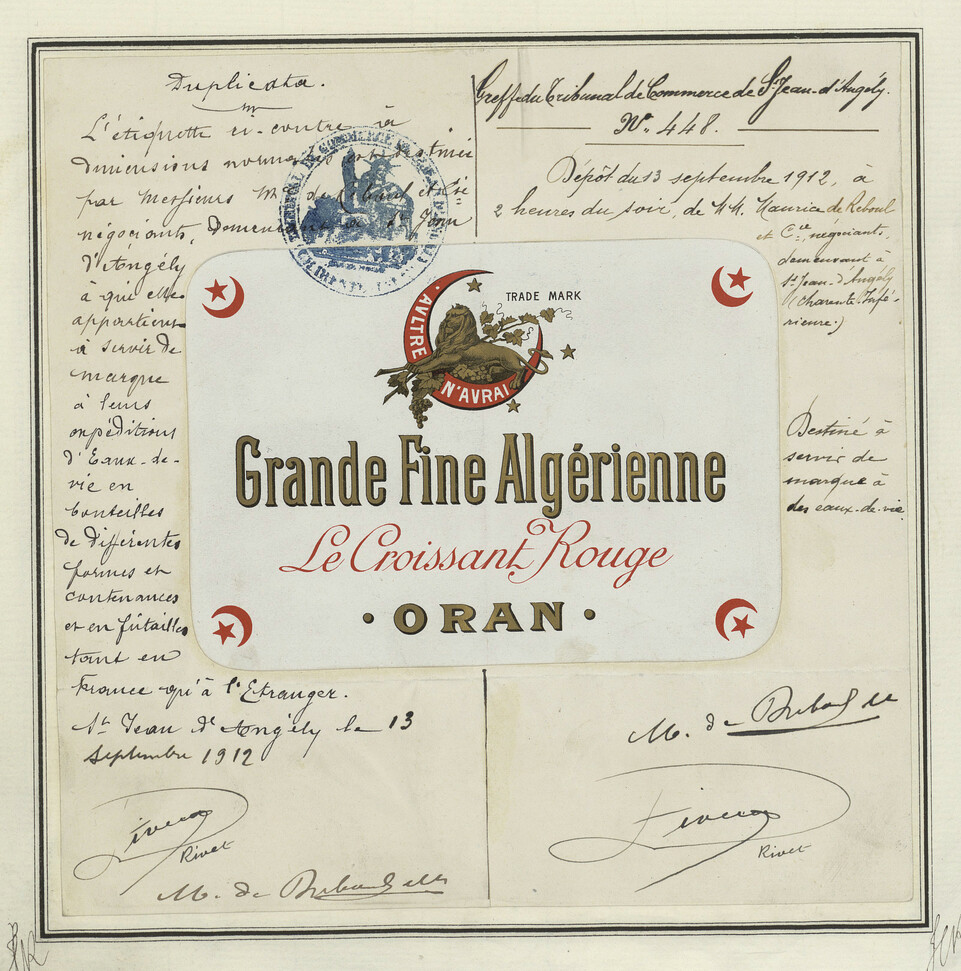 Duplicata.
L'étiquette ci-contre à
dimensions normales est destinée
par Messieurs Mce de Reboul et Cie
négociants, demeurant à St Jean
d'Angély
à qui elle
appartient
à servir de
marque
à leurs
expéditions
d'Eaux-de-
vie en
bouteilles
de différentes
formes et
contenances
et en fûtailles
tant en
France qu'à l'Etranger.
St Jean d'Angély le 13
septembre 1912
Rivet
M. de Reboul
Greffe du Tribunal de Commerce de St Jean-d'Angély.
No. 448.
Dépôt du 13 septembre 1912, à
2 heures du soir, de MM. Maurice de Reboul
et Cie, négociants,
demeurant à
St-Jean-d'Angély
(Charente Infé-
rieure.)
Destiné à
servir de
marque à
des eaux-de-vie.
M. de Reboul
Rivet
TRADE MARK
AVLTRE
N'AVRAI
Grande Fine Algérienne
Le Croissant Rouge
· ORAN ·